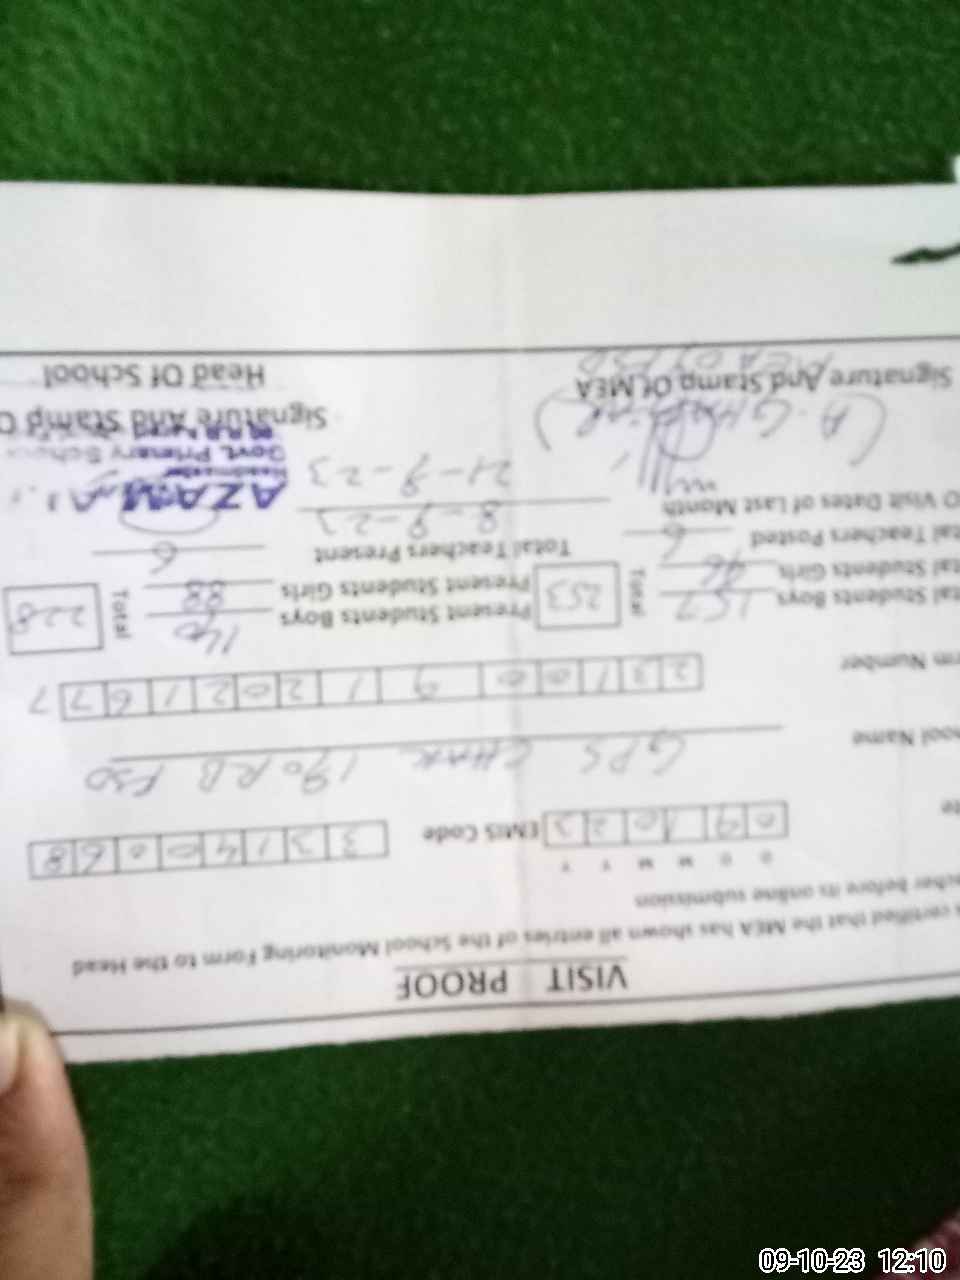 VISIT PROOF
certified that the MEA has shown all entries of the School Monitoring Form to the Head
before its online submission
D D M M Y Y
0 9 1 0 2 3 EMIS Code 3 3 1 4 0 0 6 8
Name GPS CHAK 190 RB FSD
Number 2 3 1 0 0 9 1 2 0 2 1 6 7 7
Students Boys 157 Total 253 Present Students Boys 140 Total 228
Students Girls 96 Present Students Girls 88
Teachers Posted 6 Total Teachers Present 6
Visit Dates of Last Month 8-9-23
21-9-23
AZAM ALI
Headmaster
Govt. Primary School
(A. GHAFFAR)
Signature And Stamp Of MEA
MEA 07 FSD
Signature And Stamp O
Head Of School
09-10-23 12:10